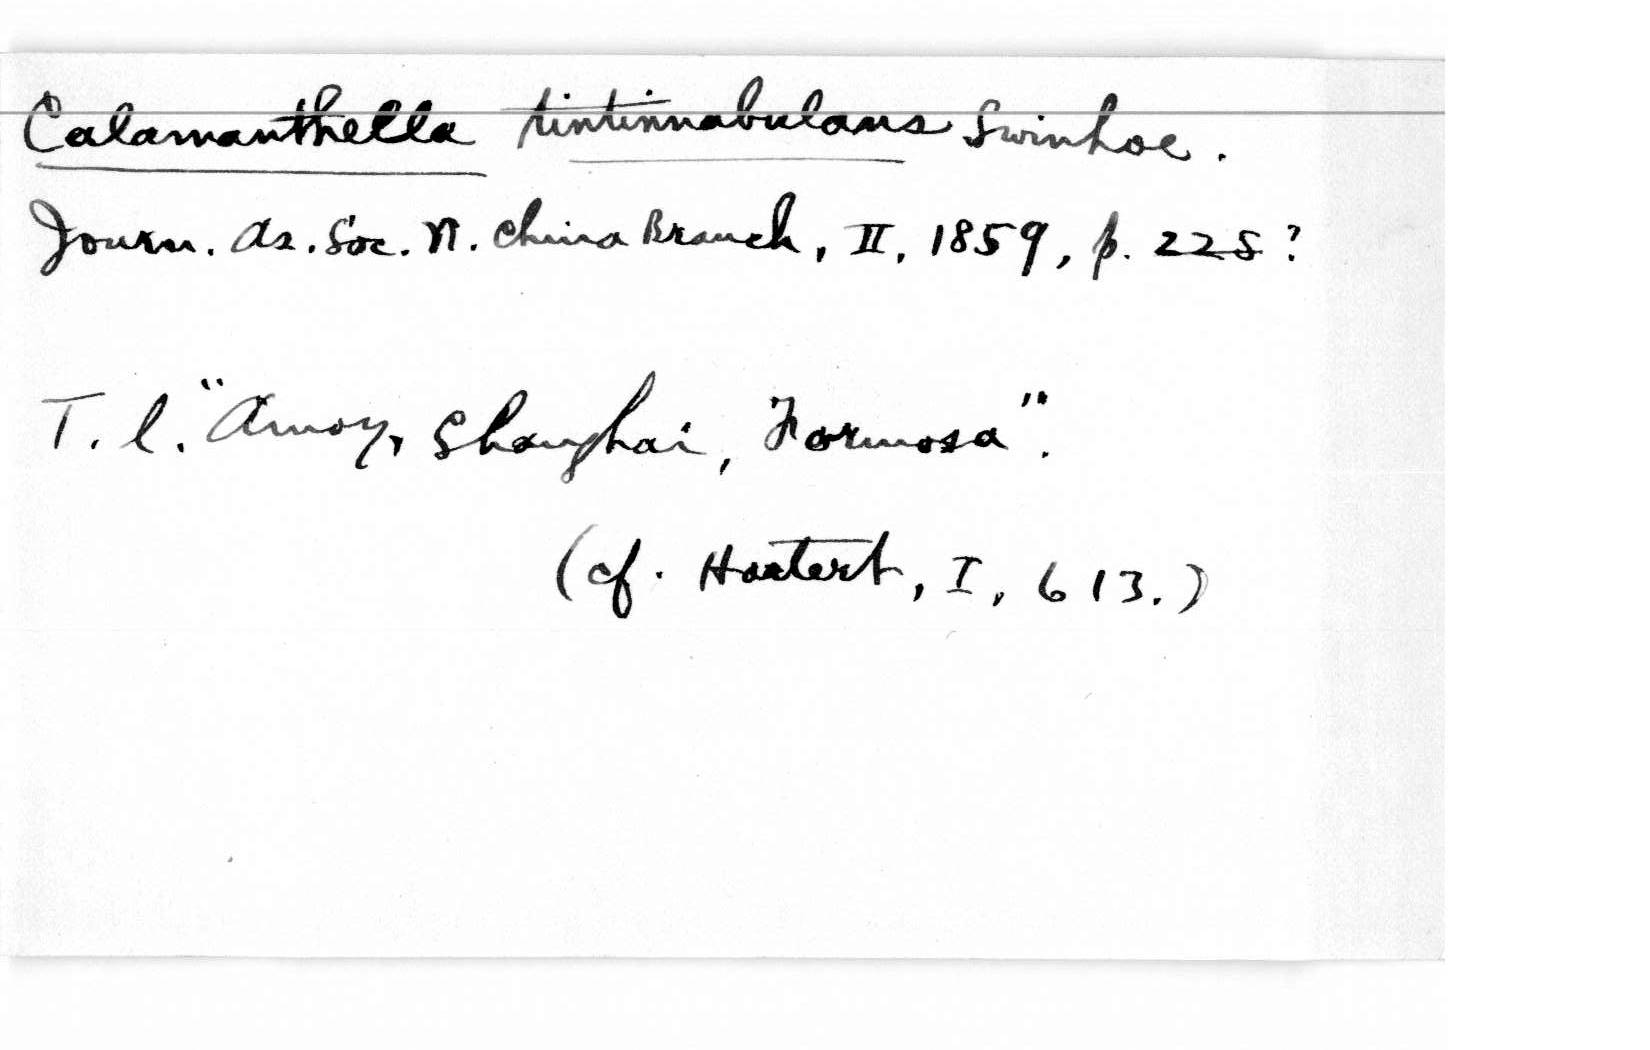 Calamanthella tintinnabulans Swinhoe.
Journ. As. Soc. N. China Branch, II, 1859, p. 225?
T. l. "Amoy, Shanghai, Formosa".
(cf. Hartert, I, 613.)